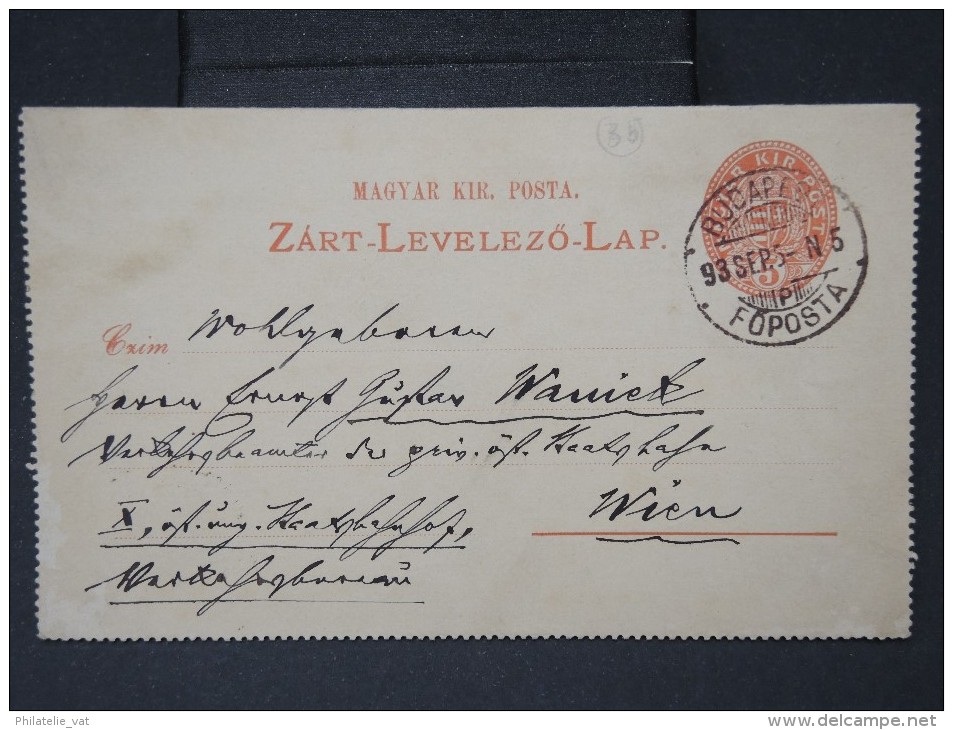 35
MAGYAR KIR. POSTA.
ZÁRT-LEVELEZŐ-LAP.
MAGYAR KIR. POSTA
5
BUDAPEST
93 SEP. 5 N 5
FŐPOSTA
Czim Wohlgeboren
Herrn Ernst Gustav Wanieck
Verkehrsbeamter der priv. öst. Staatsbahn
X, öst. ung. Staatsbahnhof, Wien
Verkehrsbureau
Philatelie_vat
www.delcampe.net